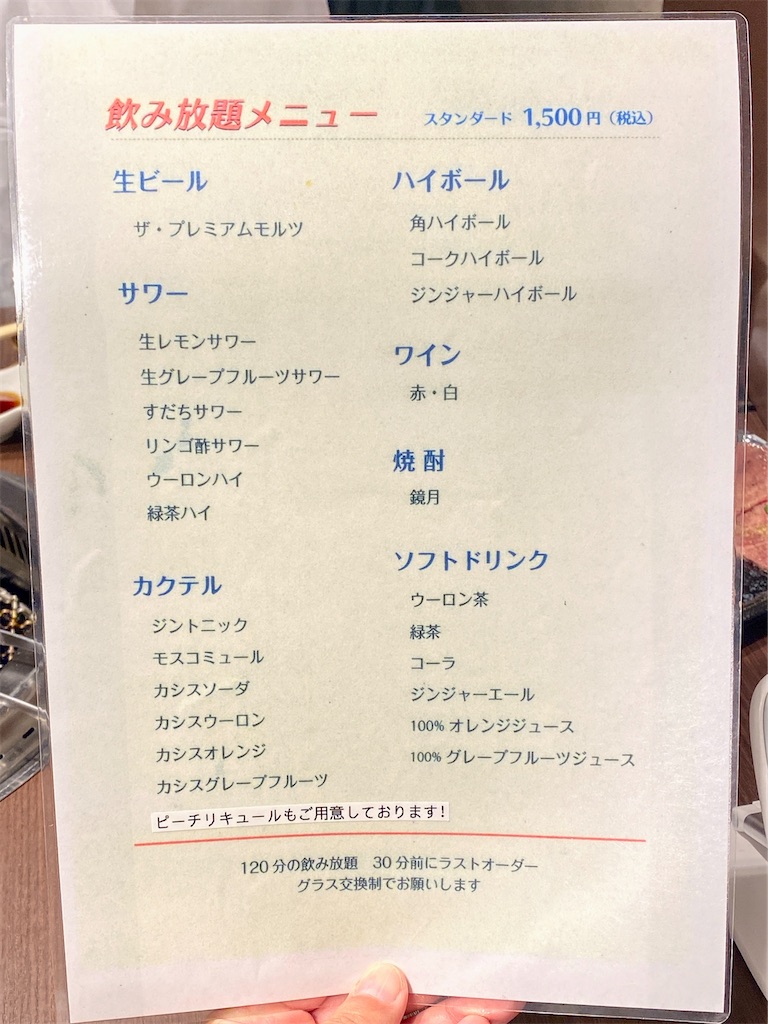 飲み放題メニュー
スタンダード 1,500円（税込）
生ビール
ザ・プレミアムモルツ
サワー
生レモンサワー
生グレープフルーツサワー
すだちサワー
リンゴ酢サワー
ウーロンハイ
緑茶ハイ
カクテル
ジントニック
モスコミュール
カシスソーダ
カシスウーロン
カシスオレンジ
カシスグレープフルーツ
ピーチリキュールもご用意しております!
ハイボール
角ハイボール
コークハイボール
ジンジャーハイボール
ワイン
赤・白
焼酎
鏡月
ソフトドリンク
ウーロン茶
緑茶
コーラ
ジンジャーエール
100% オレンジジュース
100% グレープフルーツジュース
120分の飲み放題 30分前にラストオーダー
グラス交換制でお願いします